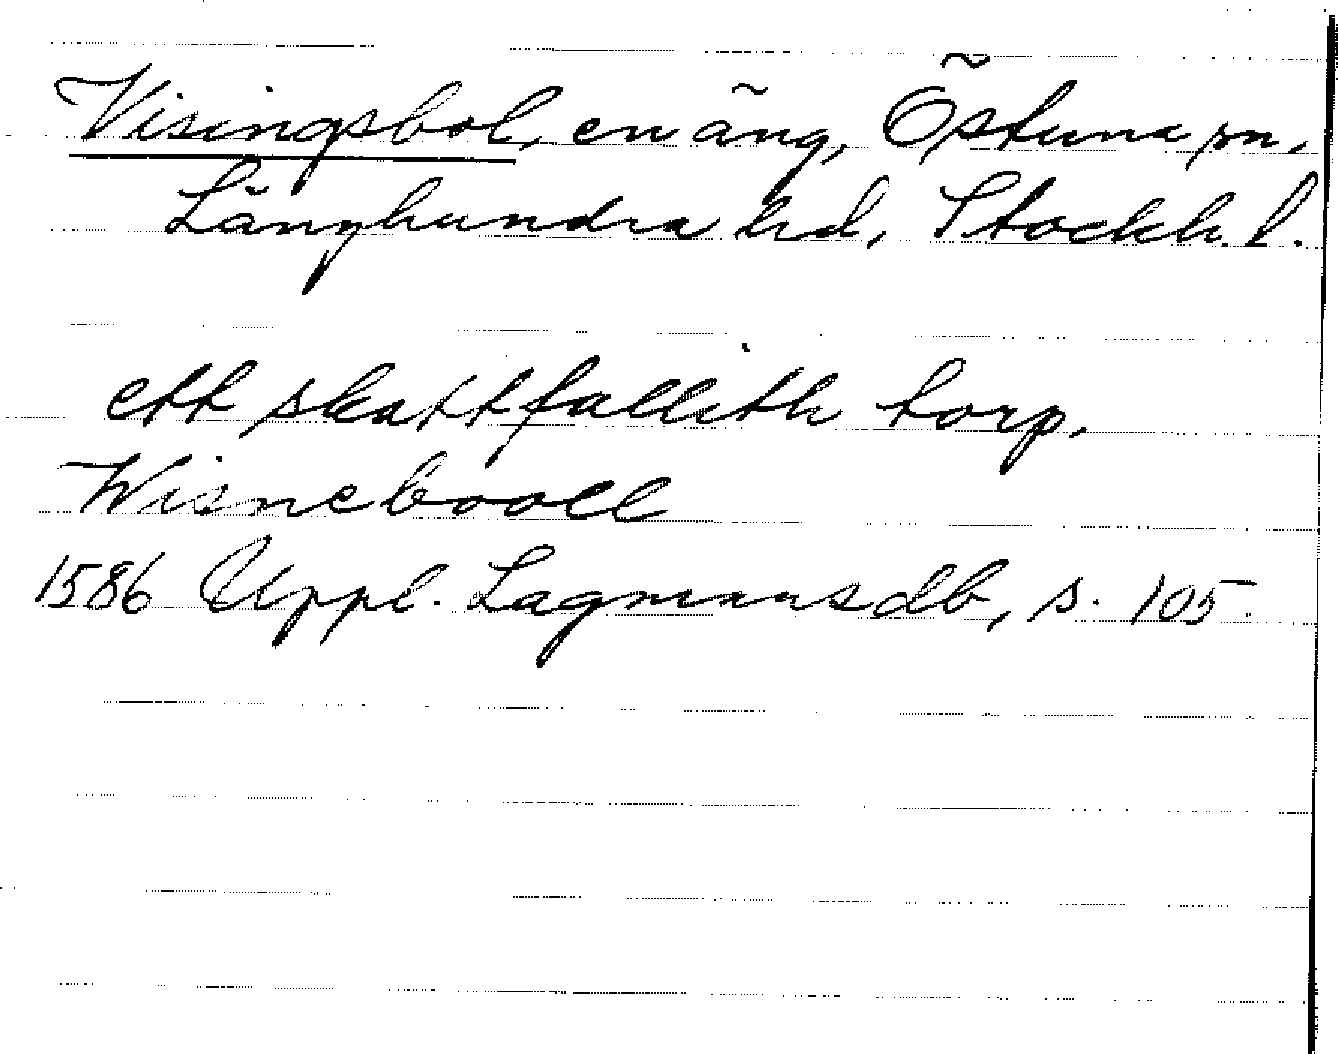 Visingsbol, en äng, Östuna sn,
Långhundra hd, Stockh. l.
ett skattfallith torp,
Wisnebooll
1586 Uppl. Lagmansdb, s. 105.